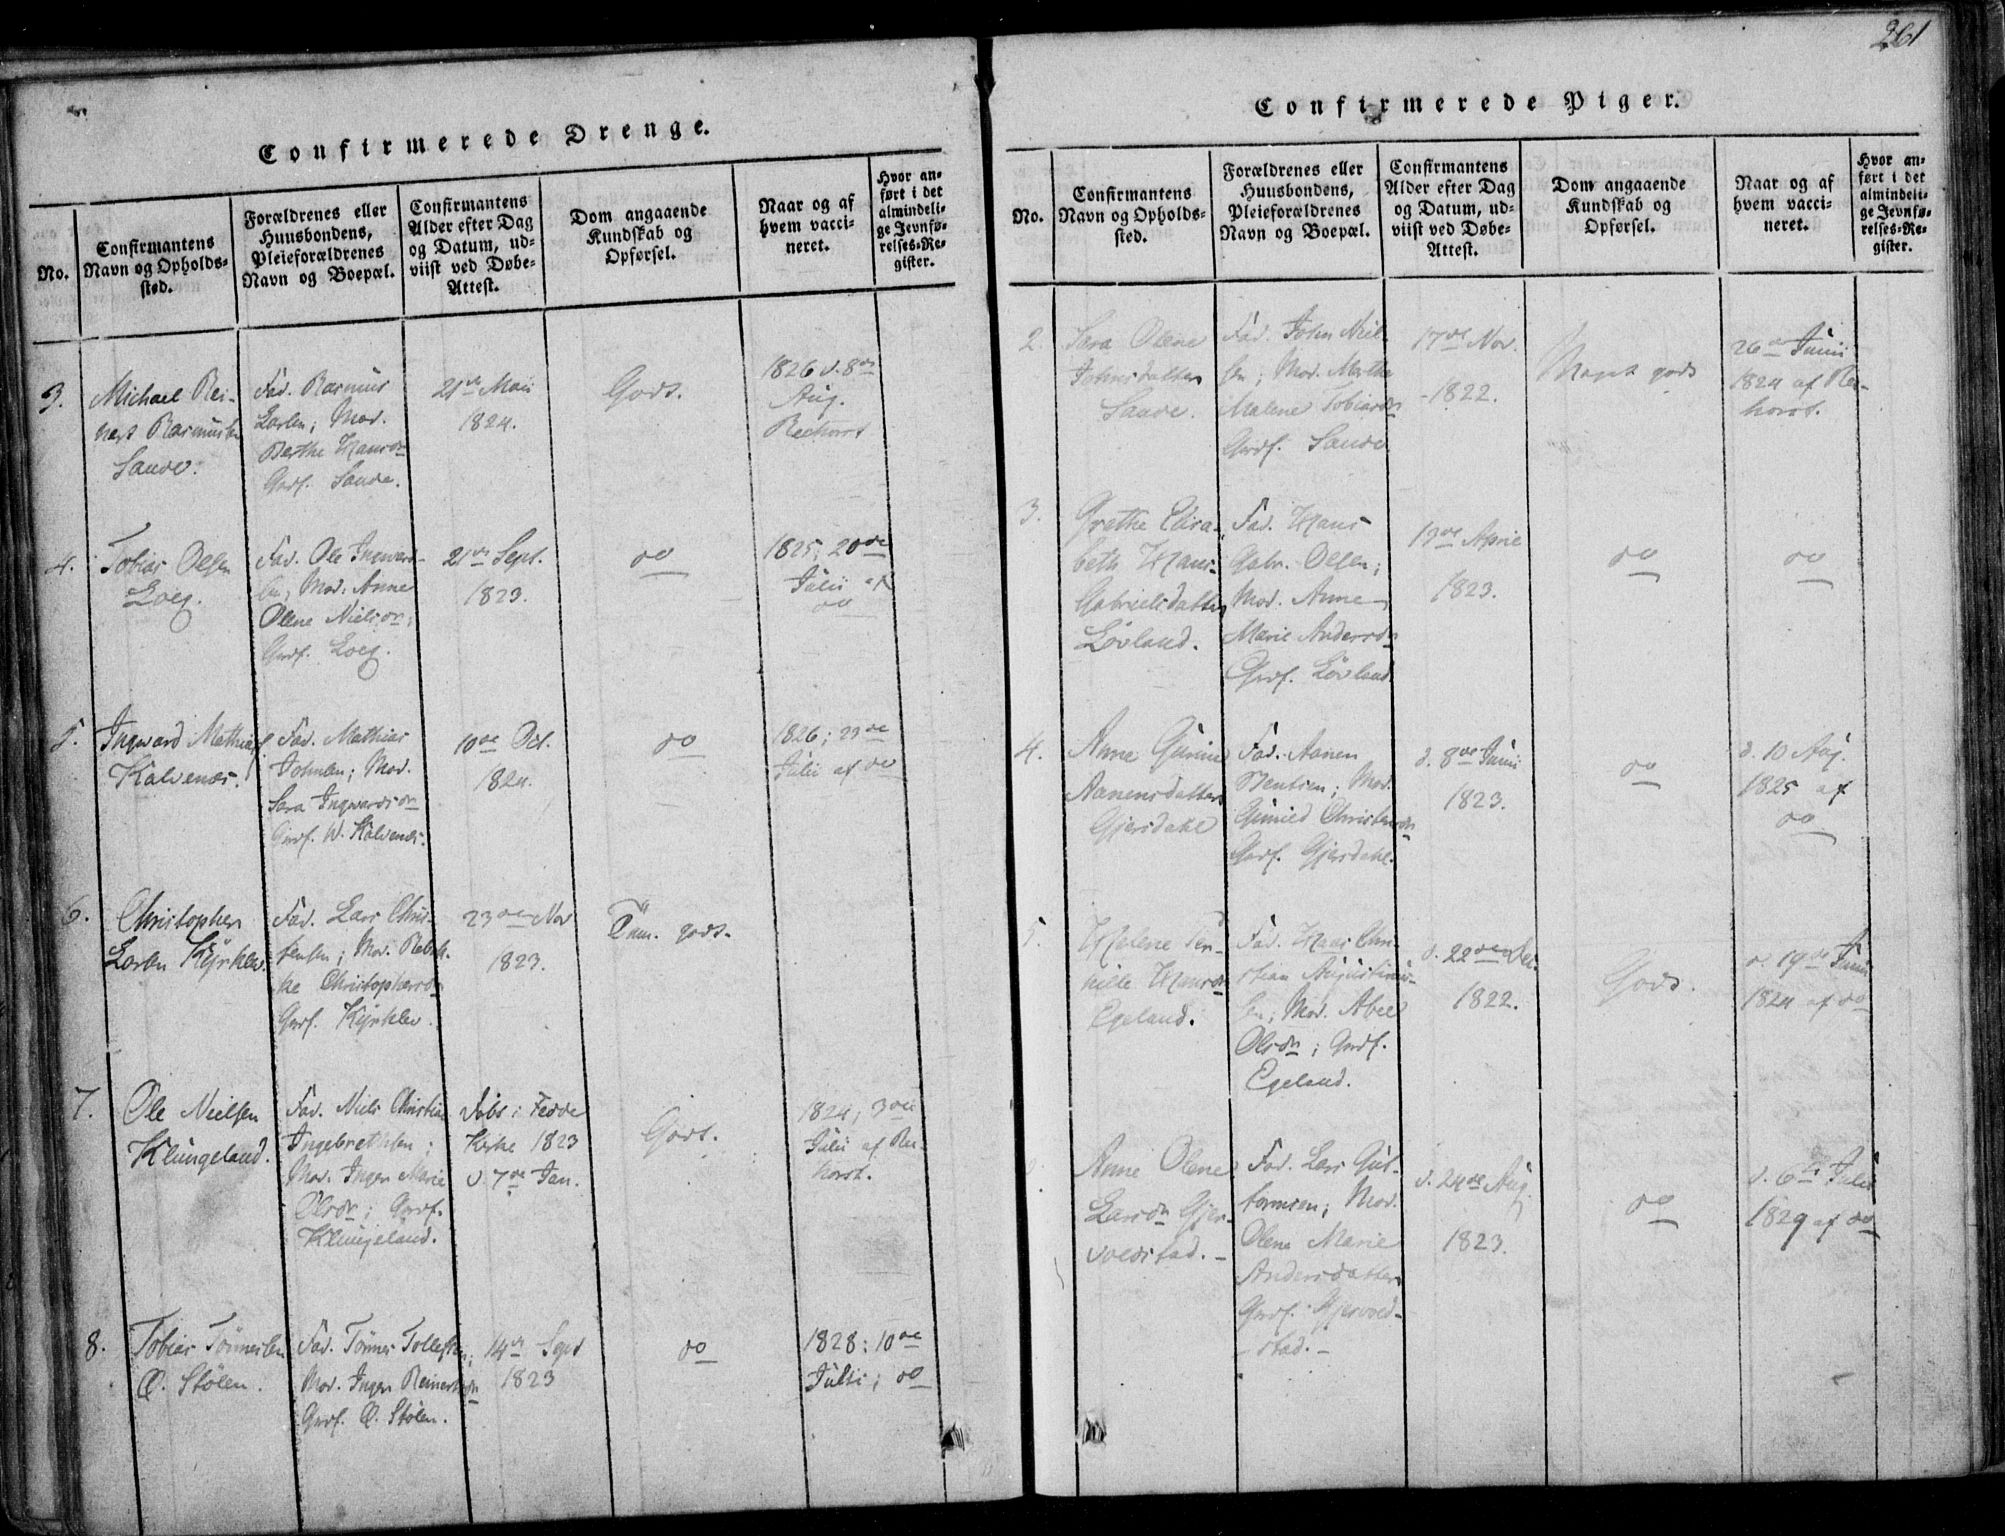 261
Confirmerede Drenge.
No.
Confirmantens
Navn og Opholds-
sted.
Forældrenes eller
Huusbondens,
Pleieforældrenes
Navn og Boepæl.
Confirmantens
Alder efter Dag
og Datum, ud-
viist ved Døbe-
Attest.
Dom angaaende
Kundskab og
Opførsel.
Naar og af
hvem vacci-
neret.
Hvor an-
ført i det
almindeli-
ge Jevnfø-
relses-Re-
gister.
3.
Michael Rei-
nert Rasmussen
Sande.
Fad. Rasmus
Larsen; Mod.
Berthe Hansdr
Grdf. Sande.
21de Maii
1824.
Godt.
1826 d. 8de
Aug.
4.
Tobias Olsen
Loeg.
Fad. Ole Ingward-
sen; Mod. Anne
Olene Nielsdr;
Grdf. Loeg.
21de Sept.
1823.
do
1825; 20de
Julii af
do
5.
Ingward Mathias
Kalvenæs.
Fad. Mathias
Johnsen; Mod.
Sara Ingwardsdr
Grdf. W. Kalvenæs.
10de Oct.
1824.
do
1826; 23de
Julii af do
6.
Christopher
Larsen Kyrklev.
Fad. Lars Chris-
tensen; Mod. Rebek-
ke Christophersdr
Grdf. Kyrklev.
23de Nov
1823.
Tem. godt.
7.
Ole Nielsen
Klungeland.
Fad. Niels Christian
Ingebrethsen;
Mod. Inger Marie
Olsdr; Grdf.
Klungeland.
Døbt i Fedde
Kirke 1823
d 7de Jan.
Godt.
1824; 3die
Julii af Rei-
horst.
8.
Tobias Tönnessen
Ø. Stølen.
Fad. Tönnes Tollefsen;
Mod. Inger Reinertsdr
Grdf. Ø. Stølen.
14de Sept
1823
do
1828; 10de
Julii; do
Confirmerede Piger.
No.
Confirmantens
Navn og Opholds-
sted.
Forældrenes eller
Huusbondens,
Pleieforældrenes
Navn og Boepæl.
Confirmantens
Alder efter Dag
og Datum, ud-
viist ved Døbe-
Attest.
Dom angaaende
Kundskab og
Opførsel.
Naar og af
hvem vacci-
neret.
Hvor an-
ført i det
almindeli-
ge Jevnfø-
relses-Re-
gister.
2.
Sara Olene
Johnsdatter
Sande.
Fad. John Niel-
sen; Mod. Merthe
Malene Tobiasdr
Grdf. Sande
17de Nov.
1822.
Meget godt
26de Junii
1824 af Rei-
horst.
3.
Grethe Elisa-
beth Hans-
Gabrielsdatter
Lövland.
Fad. Hans
Gabr. Olsen;
Mod. Anne
Marie Andersdr
Grdf. Lövland
19de April
1823.
do
do
4.
Anne Gurine
Aanensdatter
Gjersdahl
Fad. Aanen
Bentsen; Mod.
Gunild Christensdr
Grdf. Gjersdahl.
d. 8de Junii
1823.
do
d. 10 Aug.
1825 af
do
5.
Malene Per-
nille Hansdr
Egeland.
Fad. Hans Chri-
stian Augustinus-
sen; Mod. Abel
Olsdr; Grdf.
Egeland.
d. 22de Dec.
1822.
Godt.
d. 19de Junii
1824 af do
Anne Olene
Larsdr Gjer-
voldstad.-
Fad. Lars Gut-
tormsen; Mod.
Olene Marie
Andersdatter
Grdf. Gjervold-
stad.-
d. 24de Aug.
1823.
do
d. 6te Julii
1829 af do